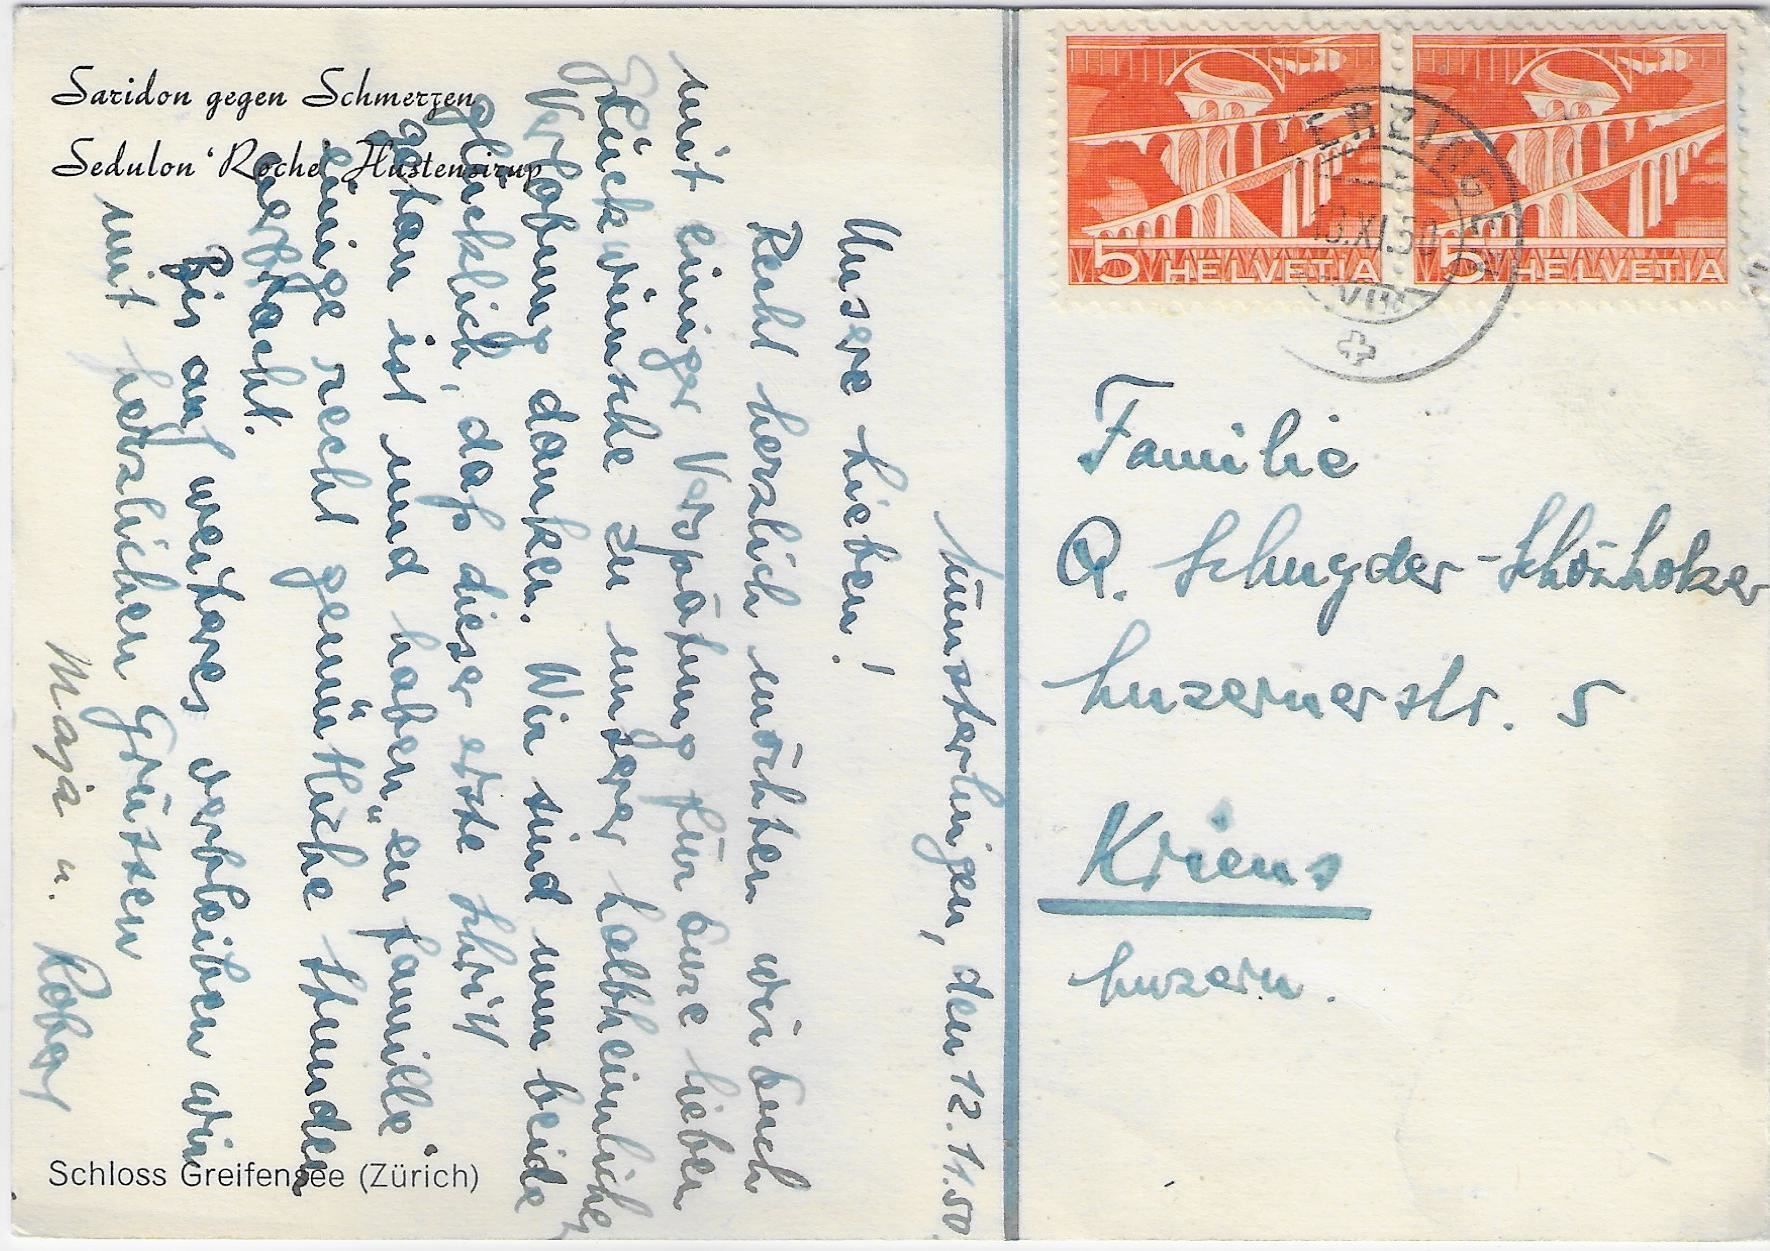 Saridon gegen Schmerzen
Sedulon 'Roche' Hustensirup
Münsterlingen, den 12.11.50.
Unsere Lieben!
Recht herzlich möchten wir Euch
mit einiger Verspätung für Eure lieben
Glückwünsche zu unserer halbheimlichen
Verlobung danken. Wir sind nun beide
glücklich, daß dieser erste Schritt
getan ist und haben „en famille"
einige recht gemütliche Stunden
verbracht.
Bis auf weiteres verbleiben wir
mit herzlichen Grüssen
Maja u. Robert
Schloss Greifensee (Zürich)
5 HELVETIA
5 HELVETIA
XI.50
Familie
A. Schnyder-Schönholzer
Luzernerstr. 5
Kriens
Luzern.